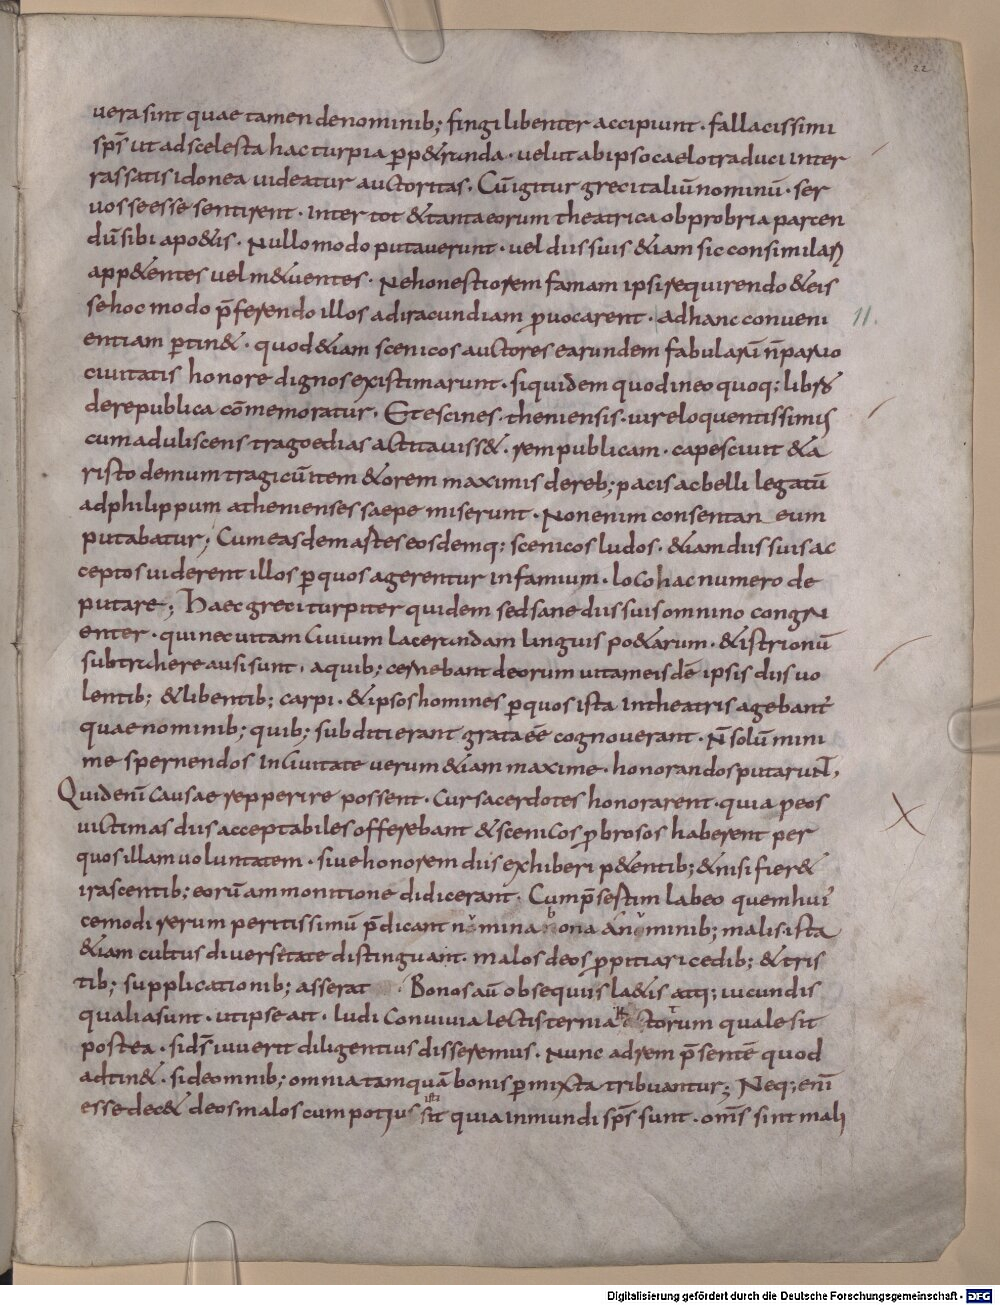 22
uera sint quae tamen denominib; fingi libenter accipiunt · fallacissimi
sps̄ ut ad scelesta hac turpia ꝑp&randa · uelut ab ipso caelo traduci inter
ras satis idonea uideatur auctoritas. Cū igitur greci taliū nominū · ser
uos se esse sentirent · inter tot &tanta eorum theatrica obprobria parcen
dū sibi apo&is · Nullo modo putauerunt · uel diis suis &iam sic consimilari
app&entes uel m&uentes · Ne honestiorem famam ipsi requirendo &eis
se hoc modo p̄ferendo illos ad iracundiam ꝓuocarent · ad hanc conueni
11.
entiam ꝑtin& · quod &iam scenicos auctores earundem fabularū n̄ paruo
ciuitatis honore dignos existimarunt · siquidem quod in eo quoq; libro
de republica cōmemoratur. Et escines · theniensis · uir eloquentissimus
cum aduliscens tragoedias actitauiss& · rem publicam · capesciuit &a
risto demum tragicū item &orem maximis dereb; pacis ac belli legatū
ad philippum athenienses saepe miserunt · Non enim consentan eum
putabatur; Cum easdem artes eosdemq; scenicos ludos · &iam diis suis ac
ceptos uiderent illos ꝑ quos agerentur infamium · loco hac numero de
putare; Haec greci turpiter quidem sed sane diis suis omnino congru
enter · qui nec uitam Ciuium lacerandam linguis po&arum · &istrionū
subtrahere ausi sunt. a quib; cernebant deorum uitam eisdē ipsis diis uo
lentib; &libentib; carpi · &ipsos homines ꝑ quos ista in theatris agebant̄
quae nominib; quib; subditi erant grata ēē cognouerant · N̄ solū mini
me spernendos in Ciuitate uerum &iam maxime · honorandos putarunt,
Quid enī Causae repperire possent · Cur sacerdotes honorarent · quia ꝑ eos
uictimas diis acceptabiles offerebant &sceniCos ꝓbrosos haberent per
quos illam uoluntatem · siue honorem diis exhiberi p&entib; &nisi fier&
irascentib; eorū ammonitione didicerant. Cum p̄sertim labeo quem hui᾽
cemodi rerum peritissimū p̄dicant numina bona ánuminib; malis ista
&iam cultus diuersetate distinguant · malos deos ꝓpitiari cedib; &tris
tib; supplicationib; asserat Bonos aū obsequiis la&is atq; iucundis
qualia sunt · ut ipse ait · ludi Conuiuia lectisternia quale sit
postea · si ds̄ iuuerit diligentius disseremus · Nunc ad rem p̄sentē quod
adtin& · si deomnib; omnia tamquā bonis ꝑmixta tribuantur; Neq; enī
esse dec& deos malos cum potius isti sit quia inmundi sps̄ sunt · om̄s sint mali
Digitalisierung gefördert durch die Deutsche Forschungsgemeinschaft - DFG